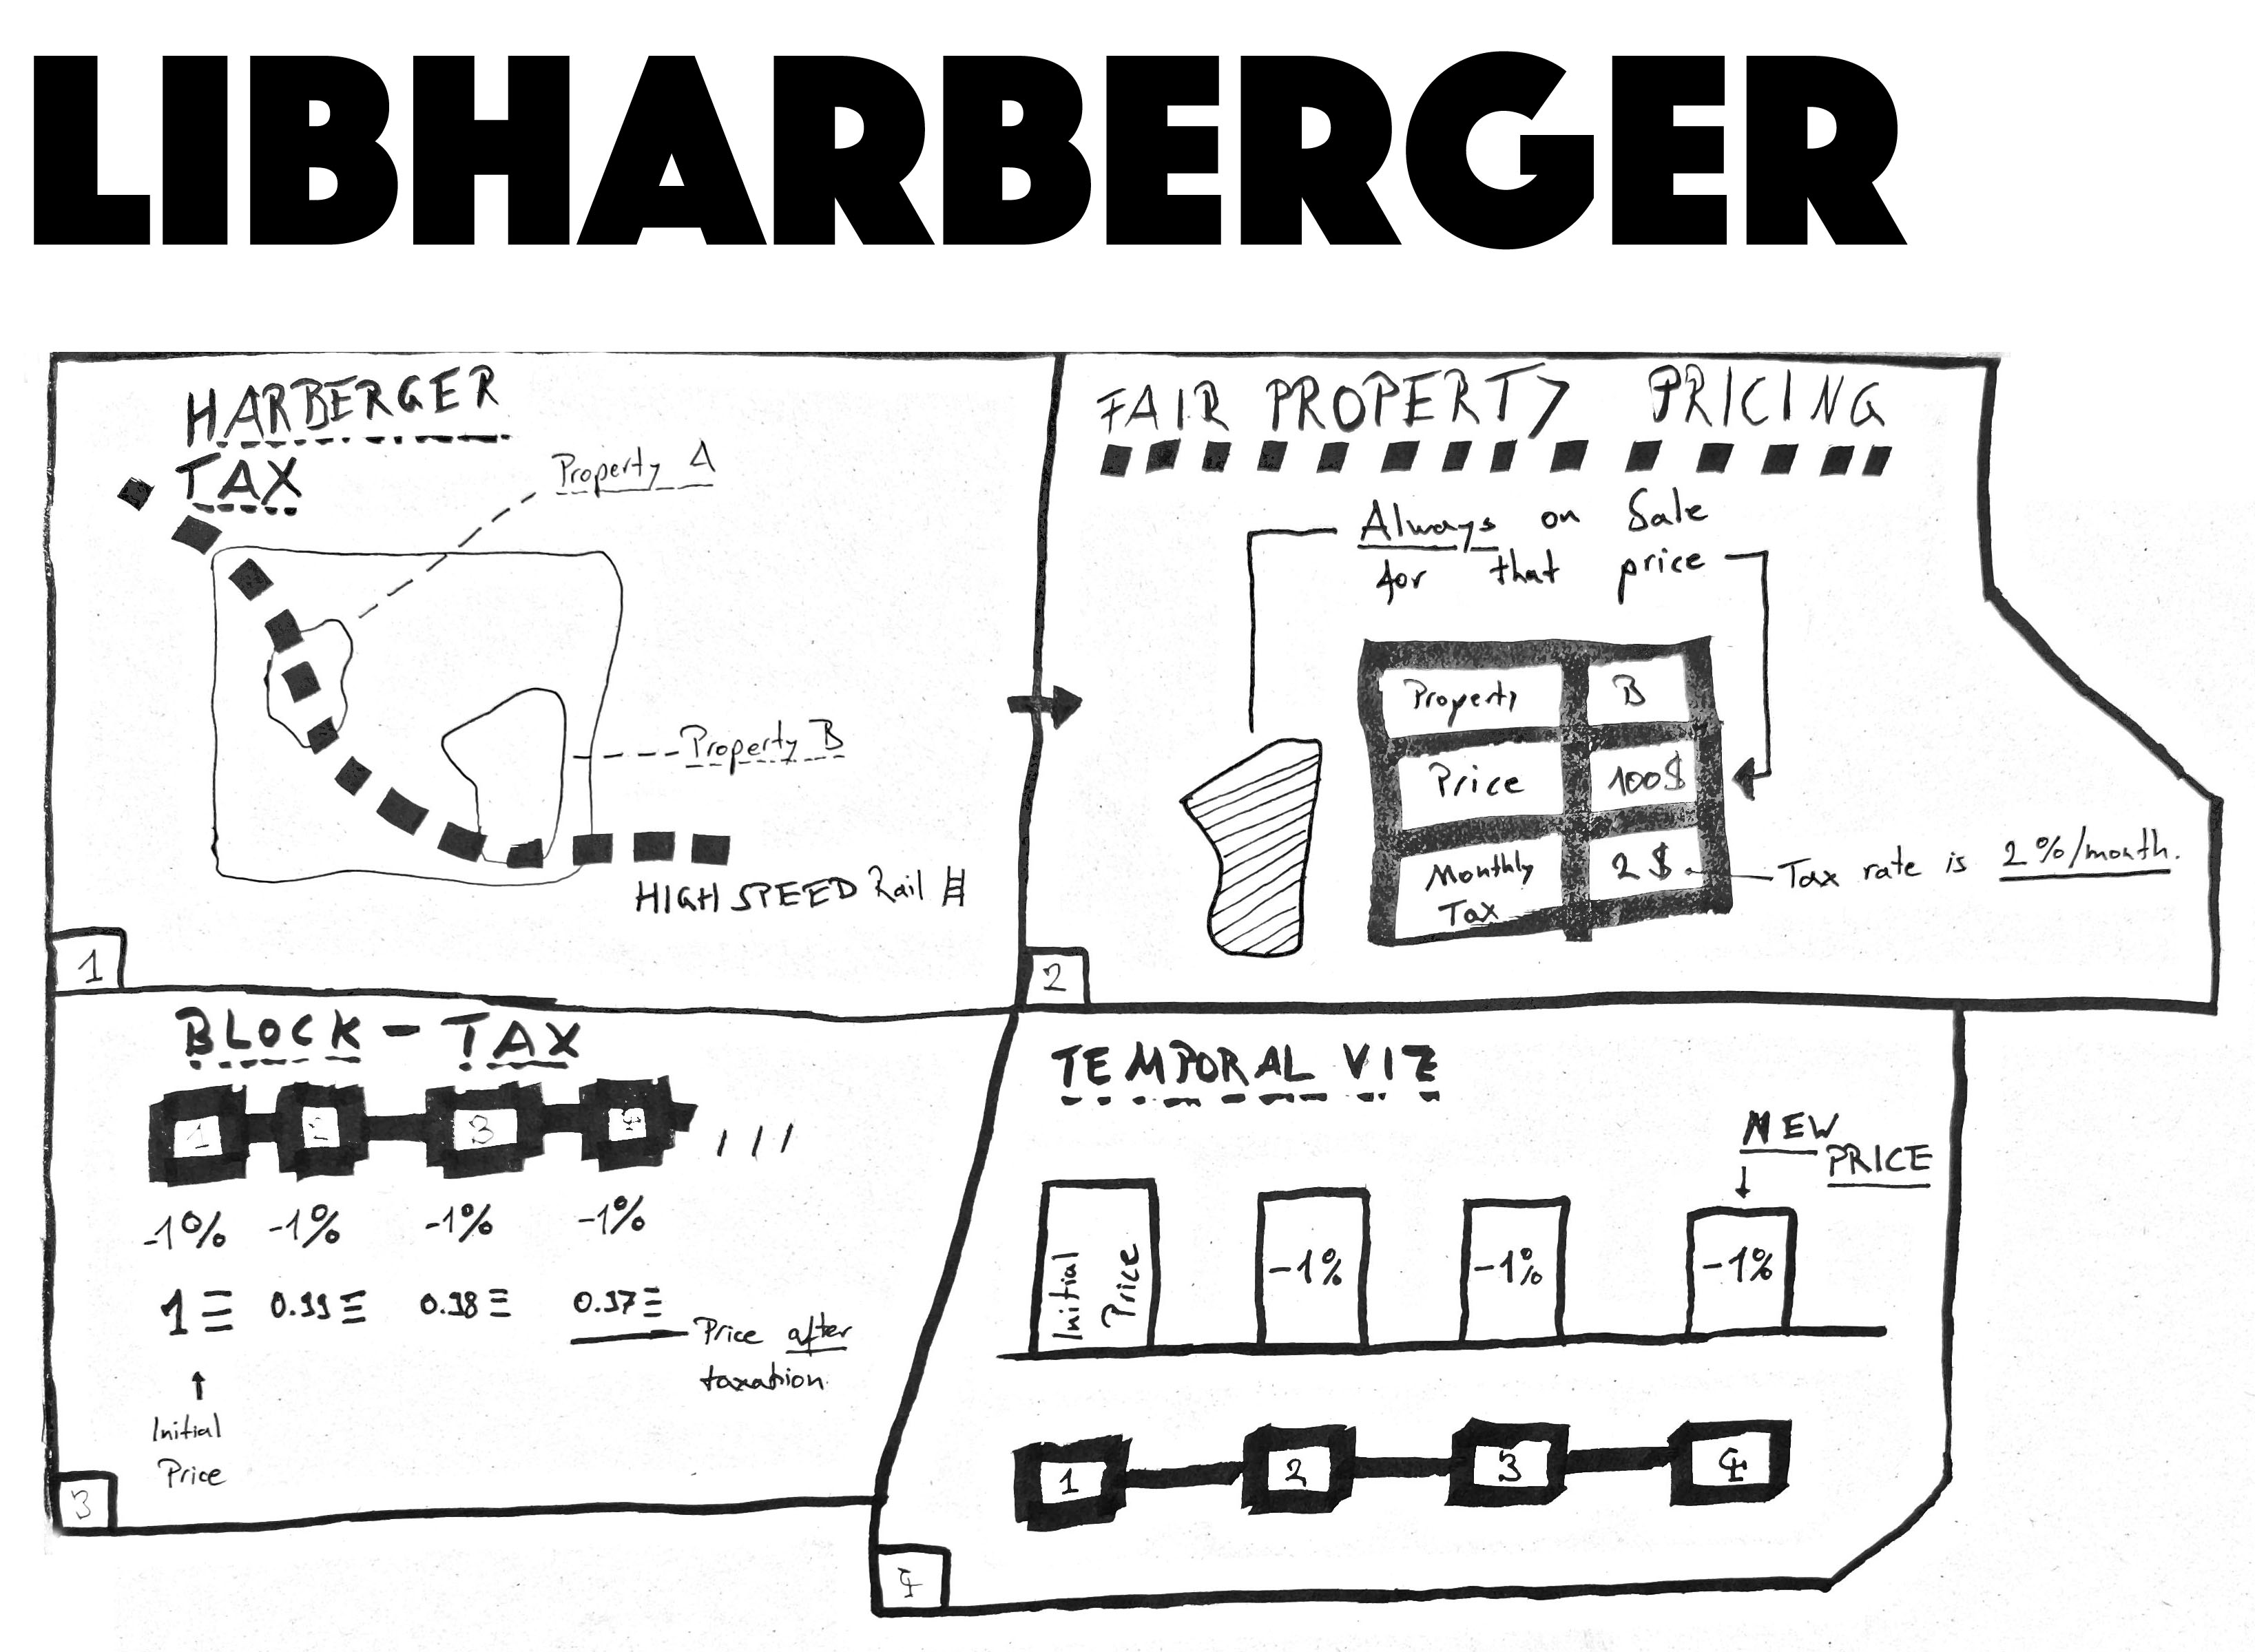 LIBHARBERGER
HARBERGER
TAX
Property A
Property B
HIGH SPEED Rail
1
FAIR PROPERTY PRICING
Always on Sale
for that price
Property B
Price 100$
Monthly
Tax
2$
Tax rate is 2%/month.
2
BLOCK-TAX
1 2 3 4
-1% -1% -1% -1%
1Ξ 0.99Ξ 0.98Ξ 0.97Ξ
Price after
taxation
Initial
Price
3
TEMPORAL VIZ
NEW
PRICE
Initial
Price
-1% -1% -1%
1 2 3 4
4